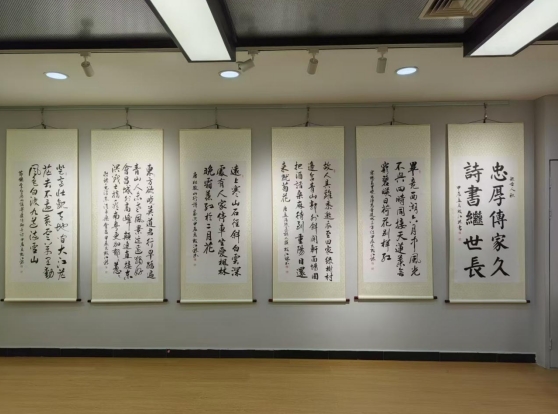 忠厚傳家久
詩書繼世長
畢竟西湖六月中風光
不與四時同接天蓮葉無
窮碧映日荷花別樣紅
故人具雞黍邀我至田家綠樹村
邊合青山郭外斜開軒面場圃
把酒話桑麻待到重陽日還
來就菊花
遠上寒山石徑斜白雲深
處有人家停車坐愛楓林
晚霜葉紅於二月花
東方欲曉莫道君行早踏遍
青山人未老風景這邊獨好
會昌城外高峰顛連直接東
溟戰士指看南粵更加郁蔥
登高壯觀天地間大江茫
茫去不還黃雲萬里動
風色白波九道流雪山